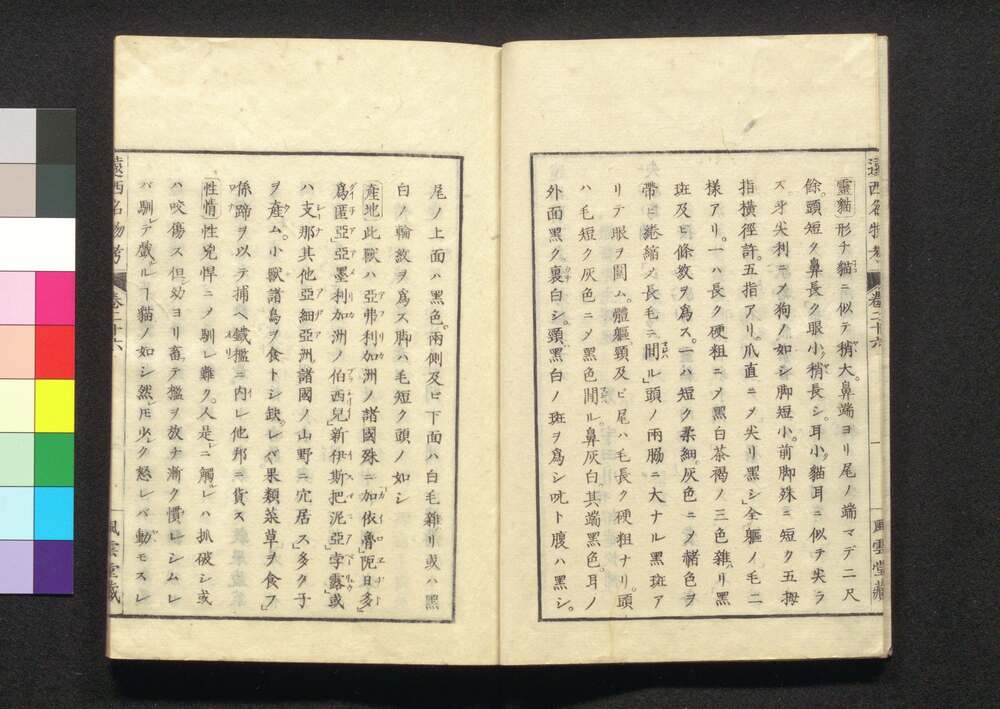 遠西名物考 卷二十六 一 風雲堂藏
靈貓形チ貓ニ似テ稍大。鼻端ヨリ尾ノ端マデ二尺
餘頭短ク鼻長ク眼小ク稍長シ。耳小ク貓耳ニ似テ尖ラ
ズ牙尖利ニノ狗ノ如シ脚短小。前脚殊ニ短ク五拇
指橫徑許。五指アリ。爪直ニヲ尖リ黑シ全軀ノ毛二
樣アリ。一ハ長ク硬粗ニヲ黑白茶褐ノ三色雜リ黑
斑及ヒ條紋ヲ爲ス。一ハ短ク柔細灰色ニヲ赭色ヲ
帶ヒ捲縮ノ長毛ニ間ル頭ノ兩腸ニ大ナル黑斑ア
リテ眼ヲ圍ム。體軀頸及ヒ尾ハ毛長ク硬粗ナリ。頭
ハ毛短ク灰色ニヲ黑色間ル。鼻灰白其端黑色耳ノ
外面黑ク裏白シ。頸黑白ノ斑ヲ爲シ吭ト腹ハ黑シ。
尾ノ上面ハ黑色。兩側及ヒ下面ハ白毛雜リ或ハ黑
白ノ輪紋ヲ爲ス脚ハ毛短ク頭ノ如シ
產地此獸ハ亞弗利加洲ノ諸國殊ニ加依魯阨日多
爲匿亞亞墨利加洲ノ伯西兒新伊斯把泥亞孛露或
ハ支那其他亞細亞洲諸國ノ山野ニ穴居ス多ク子
ヲ產ム。小獸諸鳥ヲ食トシ缺レバ果類菜草ヲ食フ
係蹄ヲ以テ捕ヘ鐵檻ニ内レ他邦ニ貨ス
性情性兇悍ニノ馴レ難ク。人是ニ觸レハ抓破シ或
ハ咬傷ス但幼ヨリ畜テ檻ヲ放ナ漸ク慣レシムレ
バ馴テ戲ルヿ貓ノ如シ然𪜈少ク怒レバ動モスレ
遠西名物考 卷二十六 風雲堂藏